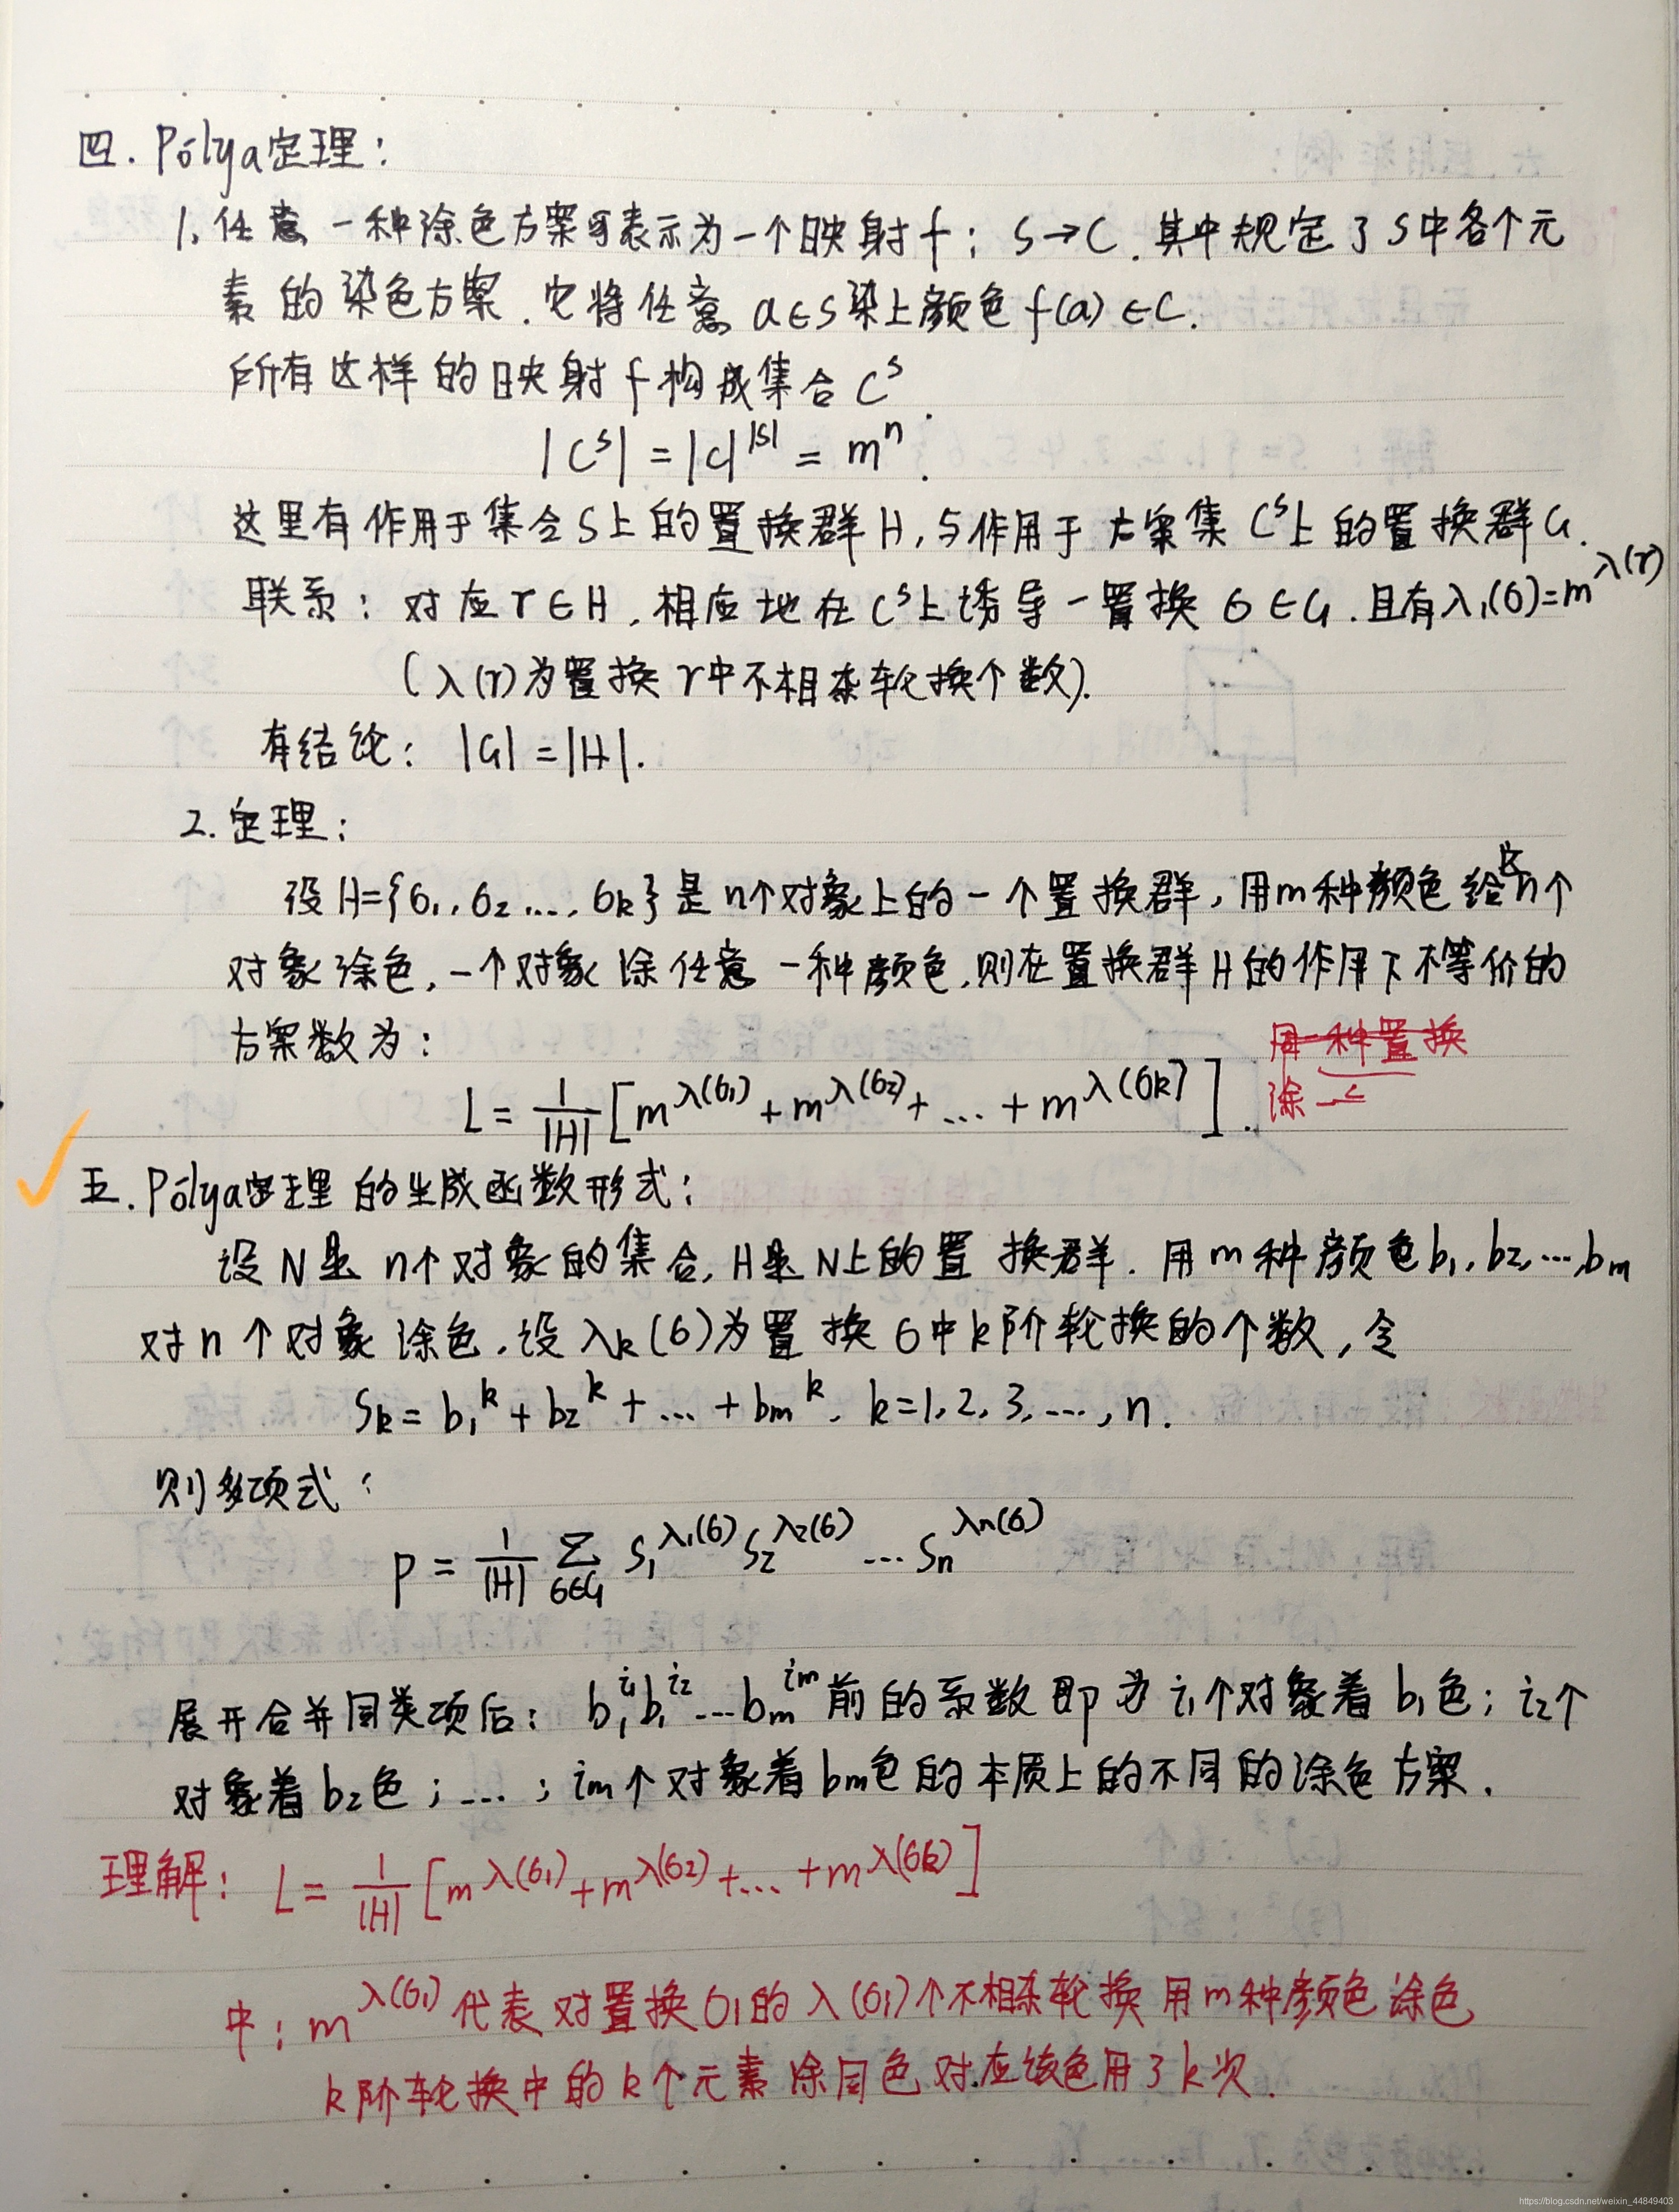 四. Pólya定理：
1. 任意一种涂色方案可表示为一个映射 f：S→C. 其中规定了S中各个元
素的染色方案. 它将任意 a∈S染上颜色 f(a)∈C.
所有这样的映射 f构成集合 C^S.
|C^S| = |C|^|S| = m^n.
这里有作用于集合S上的置换群H, 与作用于方案集 C^S上的置换群G.
联系：对应 r∈H, 相应地在C^S上诱导一置换 σ∈G. 且有λ₁(σ)=m^λ(r)
(λ(r)为置换r中不相杂轮换个数).
有结论：|G|=|H|.
2. 定理：
设 H={σ₁, σ₂ ..., σk} 是n个对象上的一个置换群, 用m种颜色给这n个
对象涂色, 一个对象涂任意一种颜色, 则在置换群H的作用下不等价的
方案数为：
L = 1/|H| [m^λ(σ₁) + m^λ(σ₂) + ... + m^λ(σk)].
用一种置换
涂
五. Pólya定理的生成函数形式：
设N是 n个对象的集合, H是N上的置换群. 用m种颜色b₁, b₂, ..., bm
对n个对象涂色, 设λk(σ)为置换σ中k阶轮换的个数, 令
Sk = b₁^k + b₂^k + ... + bm^k, k=1, 2, 3, ..., n.
则多项式：
P = 1/|H| ∑σ∈G S₁^λ₁(σ) S₂^λ₂(σ) ... Sn^λn(σ)
展开合并同类项后：b₁^i₁ b₁^i₂ ... bm^im 前的系数即为 i₁个对象着b₁色；i₂个
对象着b₂色；...；im个对象着bm色的本质上的不同的涂色方案.
理解：L = 1/|H| [m^λ(σ₁) + m^λ(σ₂) + ... + m^λ(σk)]
中：m^λ(σ₁) 代表对置换σ₁的λ(σ₁)个不相杂轮换用m种颜色涂色
k阶轮换中的k个元素涂同色对应该色用了k次.
https://blog.csdn.net/weixin_44849403